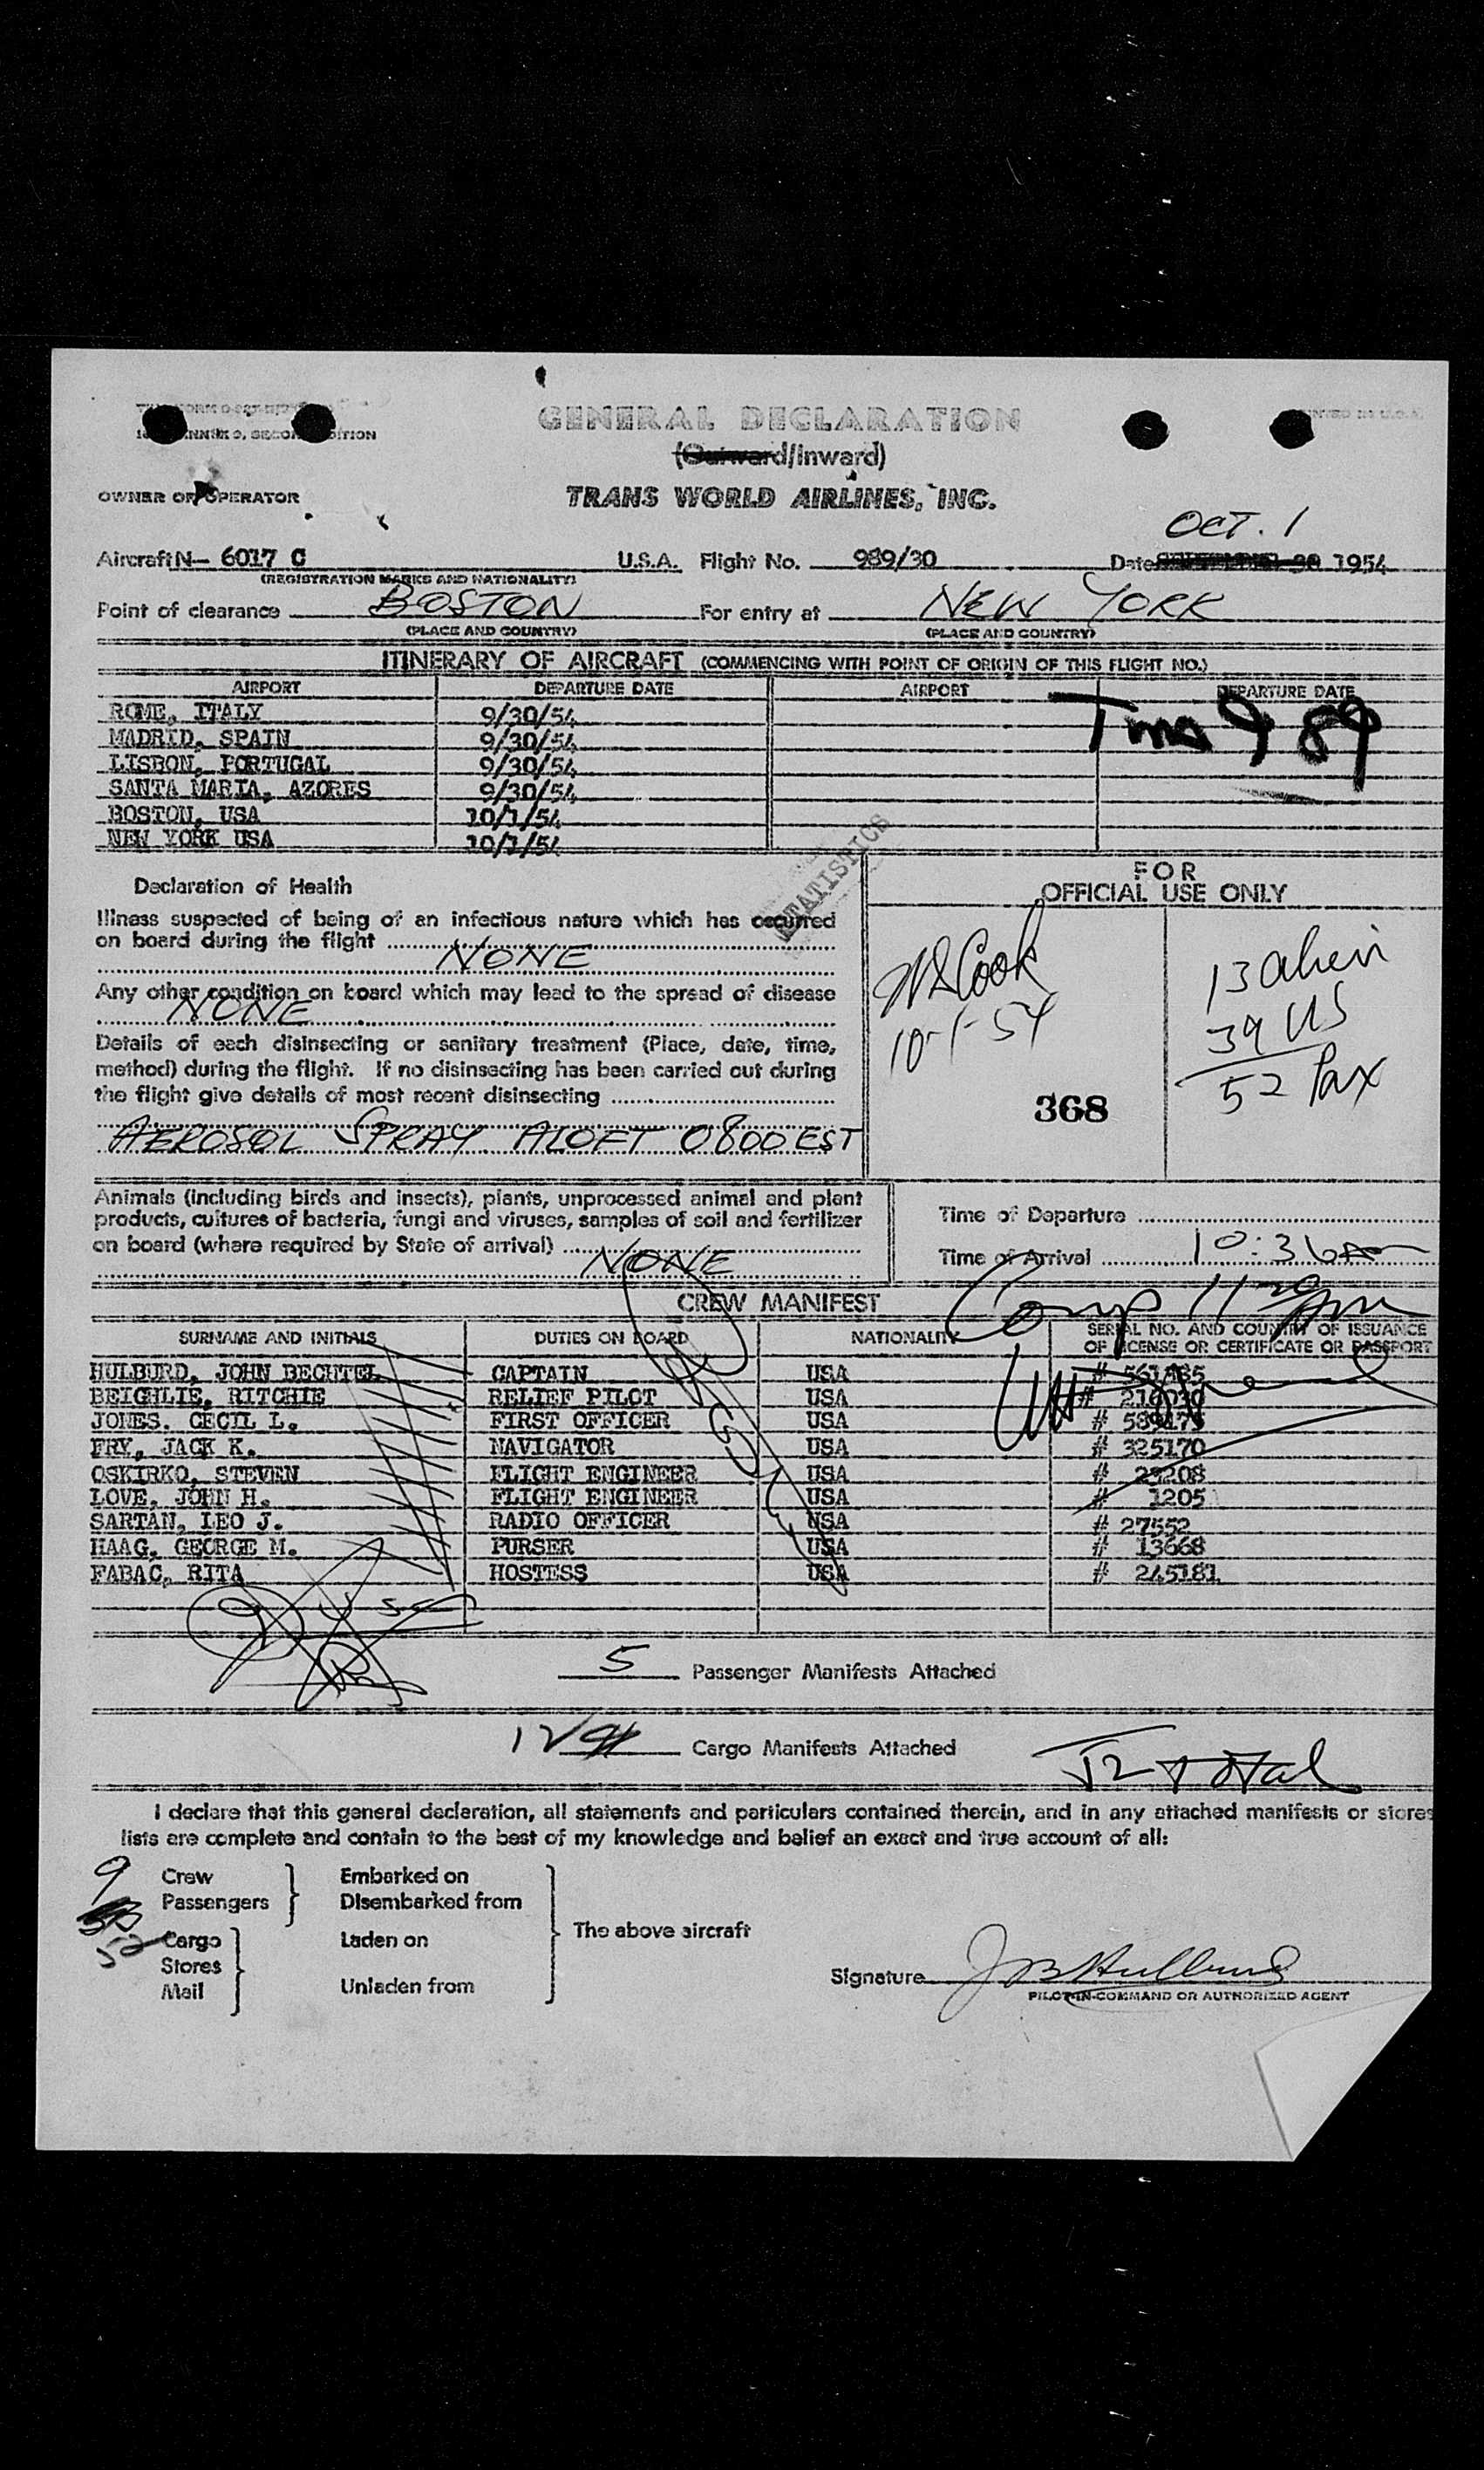 GENERAL DECLARATION
(Outward/Inward)
OWNER OR OPERATOR TRANS WORLD AIRLINES, INC.
OCT. 1
Aircraft N- 6017 C U.S.A. Flight No. 989/30 Date 1954
(REGISTRATION MARKS AND NATIONALITY)
Point of clearance BOSTON For entry at NEW YORK
(PLACE AND COUNTRY) (PLACE AND COUNTRY)
ITINERARY OF AIRCRAFT (COMMENCING WITH POINT OF ORIGIN OF THIS FLIGHT NO.)
AIRPORT DEPARTURE DATE AIRPORT DEPARTURE DATE
ROME, ITALY 9/30/54
MADRID, SPAIN 9/30/54
LISBON, PORTUGAL 9/30/54
SANTA MARIA, AZORES 9/30/54
BOSTON, USA 10/1/54
NEW YORK USA 10/1/54
989
STATISTICS
Declaration of Health
Illness suspected of being of an infectious nature which has occurred
on board during the flight
NONE
Any other condition on board which may lead to the spread of disease
NONE
Details of each disinsecting or sanitary treatment (Place, date, time,
method) during the flight. If no disinsecting has been carried out during
the flight give details of most recent disinsecting
AEROSOL SPRAY ALOFT 0800 EST
FOR
OFFICIAL USE ONLY
Cook
10-1-54
368
13 alien
39 US
52 Pax
Animals (including birds and insects), plants, unprocessed animal and plant
products, cultures of bacteria, fungi and viruses, samples of soil and fertilizer
on board (where required by State of arrival)
NONE
Time of Departure
Time of Arrival 10:36
CREW MANIFEST
SURNAME AND INITIALS DUTIES ON BOARD NATIONALITY SERIAL NO. AND COUNTRY OF ISSUANCE
OF LICENSE OR CERTIFICATE OR PASSPORT
HULBURD, JOHN BECHTEL CAPTAIN USA #
BEIGHLIE, RITCHIE RELIEF PILOT USA #
JONES. CECIL L. FIRST OFFICER USA #
FRY, JACK K. NAVIGATOR USA # 325170
OSKIRKO, STEVEN FLIGHT ENGINEER USA #
LOVE, JOHN H. FLIGHT ENGINEER USA # 1205
SARTAN, LEO J. RADIO OFFICER USA # 27552
HAAG, GEORGE M. PURSER USA # 13668
FABAC, RITA HOSTESS USA # 245181
5 Passenger Manifests Attached
12 Cargo Manifests Attached
12 total
I declare that this general declaration, all statements and particulars contained therein, and in any attached manifests or stores
lists are complete and contain to the best of my knowledge and belief an exact and true account of all:
9 Crew Embarked on
Passengers Disembarked from
The above aircraft
52 Cargo Laden on
Stores
Mail Unladen from
Signature J B Hulburd
PILOT-IN-COMMAND OR AUTHORIZED AGENT